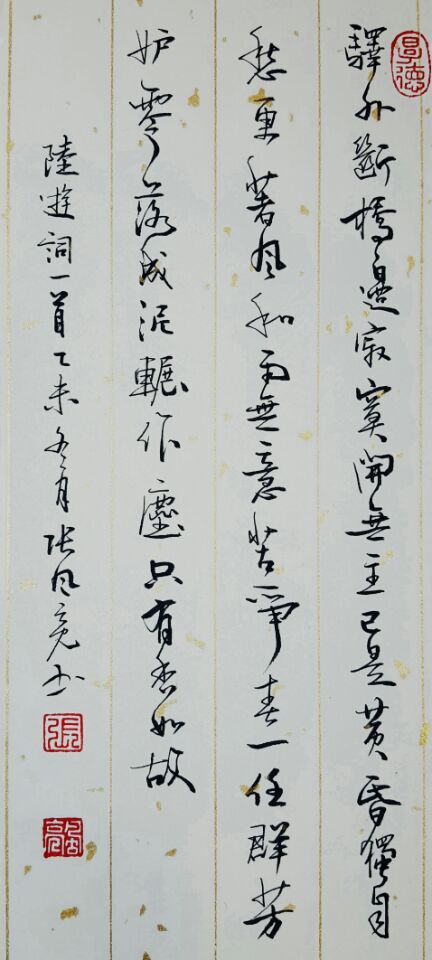 驛外斷橋邊寂寞開無主已是黄昏獨自
愁更著風和雨無意苦爭春一任群芳
妒零落成泥輾作塵只有香如故
陸游詞一首乙未冬月张风亮书
張